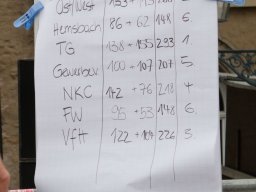 Ost/West
Hemsbach 86 + 62 148 6
TG 138 + 155 293 1
Gewerbev. 100 + 107 207 5
NKC 142 + 76 218 4
FW 95 + 53 148 6
VfH 122 + 104 226 3